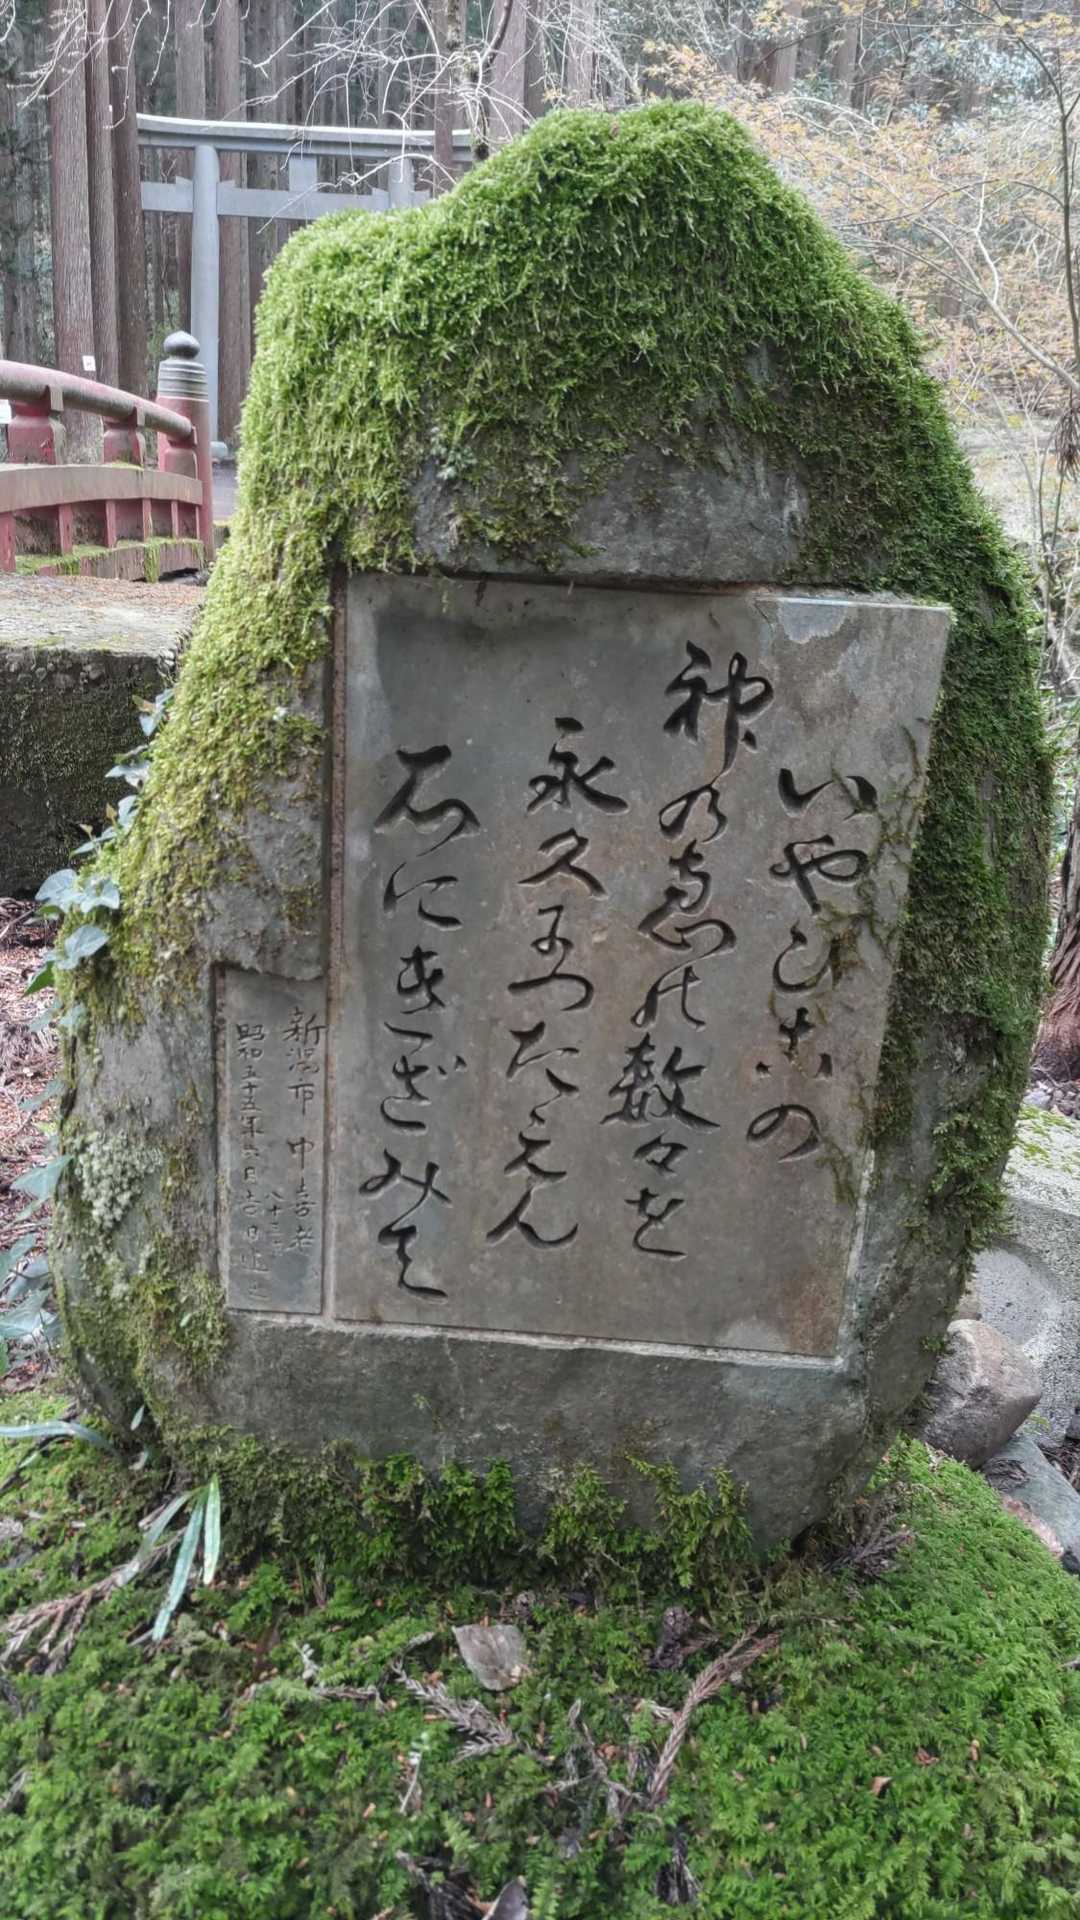 いやひこの
神の恵の数々を
永久につたえん
石にきざみて
新潟市 中 喜老
八十二
昭和五十五年六月吉日